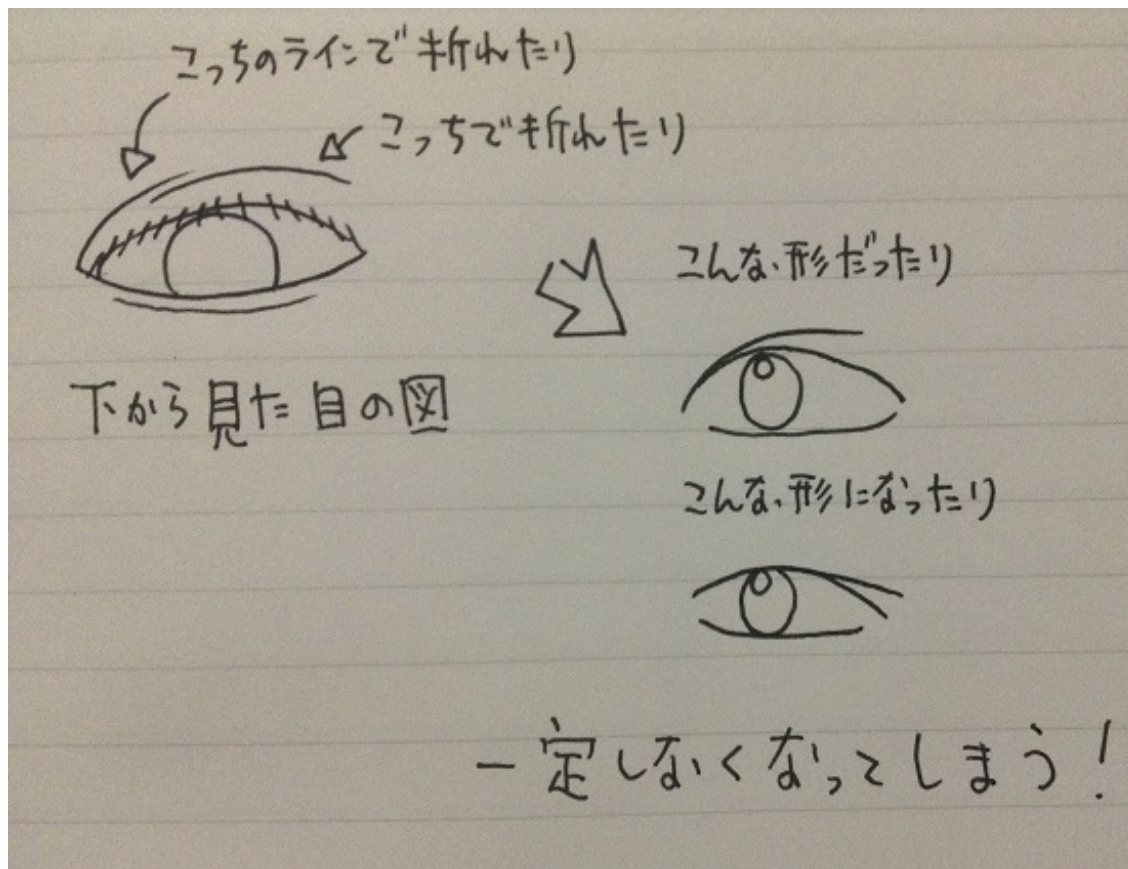 こっちのラインで折れたり
こっちで折れたり
下から見た目の図
こんな形だったり
こんな形になったり
一定しなくなってしまう!